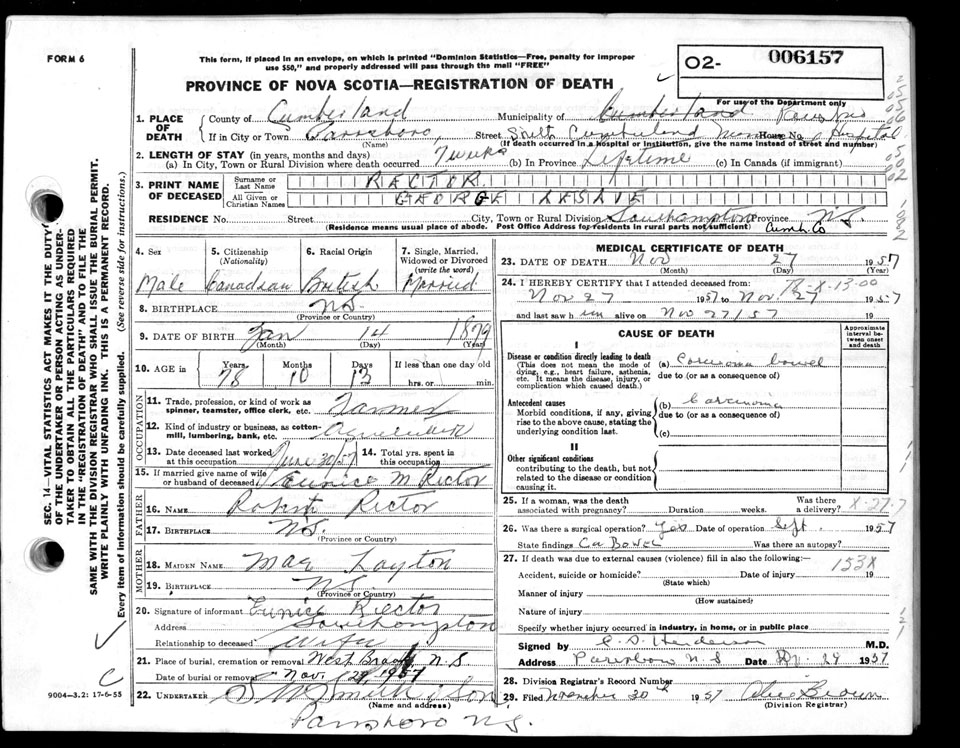 FORM 6
This form, if placed in an envelope, on which is printed "Dominion Statistics—Free, penalty for improper
use $50," and properly addressed will pass through the mail "FREE"
O2- 006157
PROVINCE OF NOVA SCOTIA—REGISTRATION OF DEATH
For use of the Department only
1. PLACE OF DEATH
County of Cumberland Municipality of Cumberland
If in City or Town Parrsboro, Street South Cumberland House No. Hospital
(Name) (If death occurred in a hospital or institution, give the name instead of street and number)
2. LENGTH OF STAY (in years, months and days)
(a) In City, Town or Rural Division where death occurred 7 weeks (b) In Province Lifetime (c) In Canada (if immigrant)
3. PRINT NAME OF DECEASED
Surname or Last Name RECTOR
All Given or Christian Names GEORGE LESLIE
RESIDENCE No. Street City, Town or Rural Division Southampton Province N.S.
(Residence means usual place of abode. Post Office Address for residents in rural parts not sufficient) Cumb. Co
4. Sex 5. Citizenship (Nationality) 6. Racial Origin 7. Single, Married, Widowed or Divorced (write the word)
Male Canadian British Married
8. BIRTHPLACE N.S.
(Province or Country)
9. DATE OF BIRTH Jan 14 1879
(Month) (Day) (Year)
10. AGE in Years Months Days If less than one day old
78 10 13 hrs. or min.
OCCUPATION
11. Trade, profession or kind of work as spinner, teamster, office clerk, etc. Farmer
12. Kind of industry or business, as cotton-mill, lumbering, bank, etc.
13. Date deceased last worked at this occupation June 30/57 14. Total yrs. spent in this occupation
15. If married give name of wife or husband of deceased Eunice M Rector
FATHER
16. Name Robert Rector
17. BIRTHPLACE N.S.
(Province or Country)
MOTHER
18. MAIDEN NAME Mae Layton
19. BIRTHPLACE N.S.
(Province or Country)
20. Signature of informant Eunice Rector
Address Southampton
Relationship to deceased wife
21. Place of burial, cremation or removal West Brook N.S
Date of burial or removal Nov. 29, 1957
22. UNDERTAKER Smith & Son
(Name and address)
Parrsboro N.S.
MEDICAL CERTIFICATE OF DEATH
23. DATE OF DEATH Nov 27 1957
(Month) (Day) (Year)
24. I HEREBY CERTIFY that I attended deceased from:
Nov 27 1957 to Nov. 27 1957
and last saw him alive on Nov 27/57 19
CAUSE OF DEATH
Approximate interval between onset and death
I
Disease or condition directly leading to death
(This does not mean the mode of dying, e.g., heart failure, asthenia, etc. It means the disease, injury, or complication which caused death.)
(a) Carcinoma bowel
due to (or as a consequence of)
Antecedent causes
Morbid conditions, if any, giving rise to the above cause, stating the underlying condition last.
(b) Carcinoma
due to (or as a consequence of)
(c)
II
Other significant conditions
contributing to the death, but not related to the disease or condition causing it.
25. If a woman, was the death associated with pregnancy? Duration weeks. Was there a delivery? X-27-7
26. Was there a surgical operation? Yes Date of operation Sept. 1957
State findings Ca Bowel Was there an autopsy?
27. If death was due to external causes (violence) fill in also the following:— 153X
Accident, suicide or homicide? Date of injury 19
(State which)
Manner of injury
(How sustained)
Nature of injury
Specify whether injury occurred in industry, in home, or in public place
Signed by Henderson M.D.
Address Parrsboro N.S Date 29 1957
28. Division Registrar's Record Number
29. Filed November 30th 1957 Olive Brown
(Division Registrar)
SEC. 14—VITAL STATISTICS ACT MAKES IT THE DUTY
OF THE UNDERTAKER OR PERSON ACTING AS UNDER-
TAKER TO OBTAIN ALL THE PARTICULARS REQUIRED
IN THE "REGISTRATION OF DEATH" AND TO FILE THE
SAME WITH THE DIVISION REGISTRAR WHO SHALL ISSUE THE BURIAL PERMIT.
WRITE PLAINLY WITH UNFADING INK. THIS IS A PERMANENT RECORD.
Every item of information should be carefully supplied. (See reverse side for instructions.)
C
9004—3.2: 17-6-55